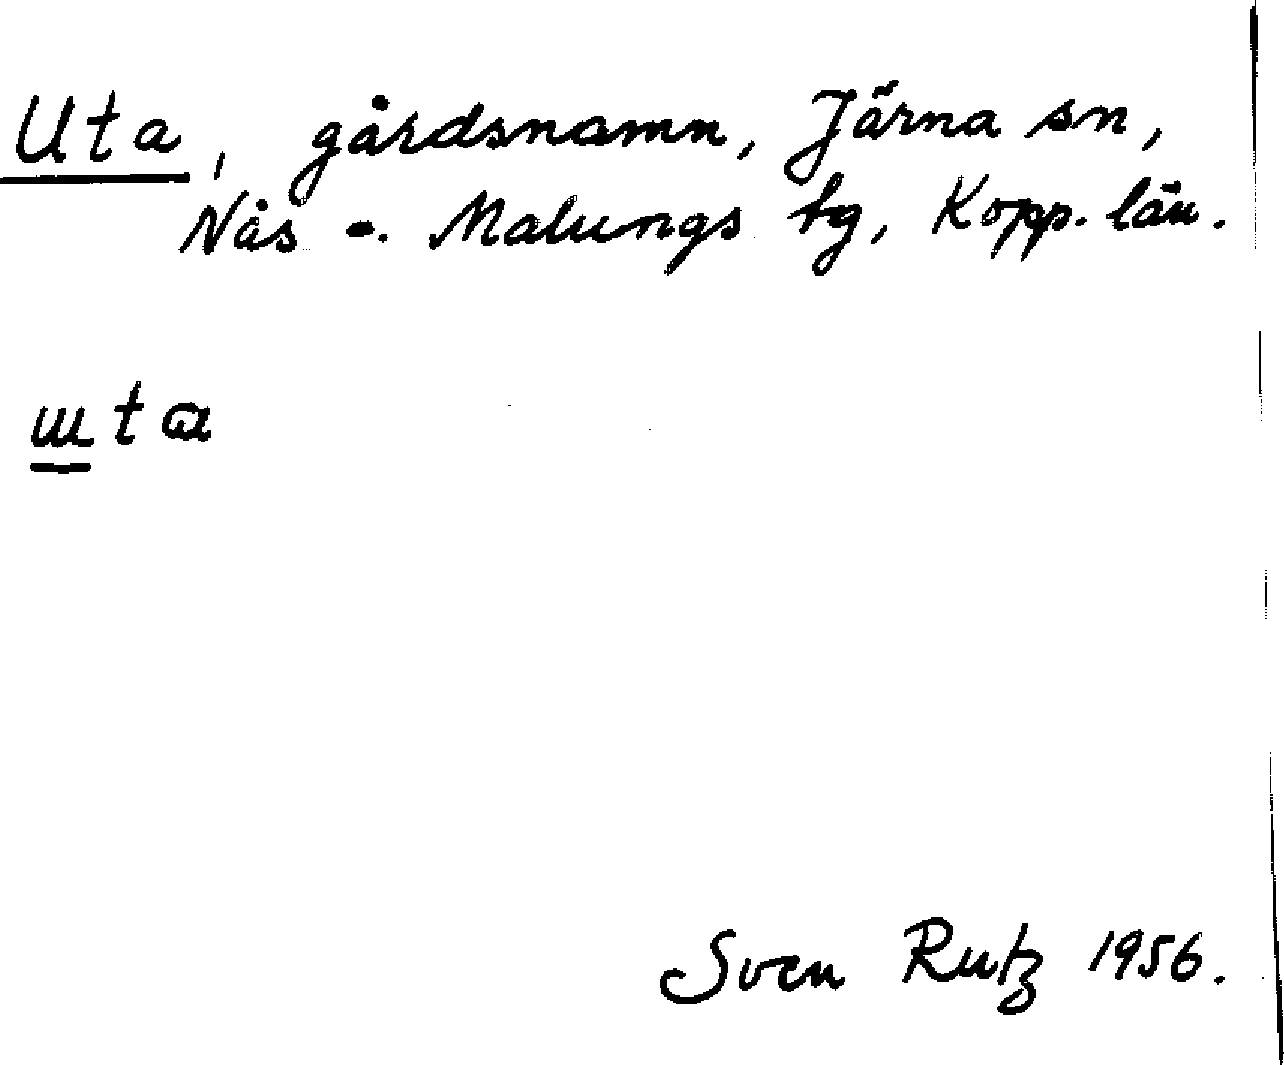 Uta, gårdsnamn, Järna sn,
Nås o. Malungs tg, Kopp. län.
uta
Sven Rutz 1956.